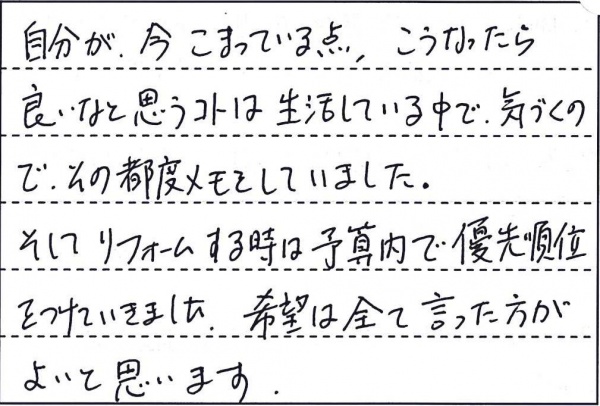 自分が、今こまっている点、こうなったら
良いなと思うコトは生活している中で、気づくの
で、その都度メモをしていました。
そしてリフォームする時は予算内で優先順位
をつけていきました。希望は全て言った方が
よいと思います。